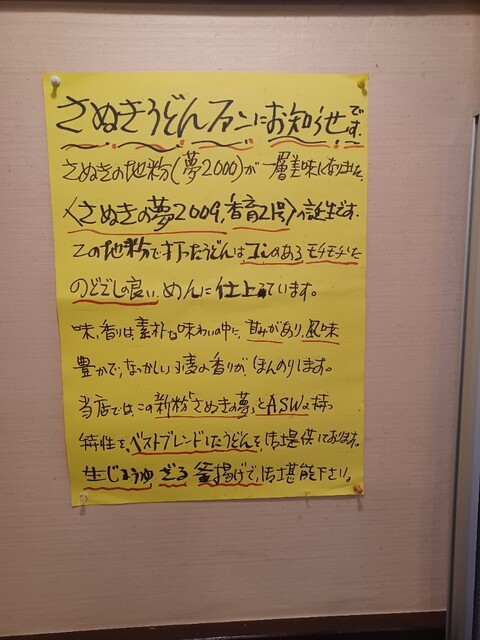 さぬきうどんファンにお知らせです。
さぬきの地粉(夢2000)が一層美味になりました。
〈さぬきの夢2009,香育21号〉の誕生です。
この地粉で打ったうどんは、コシのあるモチモチした
のどごしの良い、めんに仕上っています。
味、香りは、素朴な味わいの中に、甘みがあり、風味
豊かで、なつかしい小麦の香りが、ほんのりします。
当店では、この新粉「さぬきの夢」とASWの持つ
特性を、ベストブレンドしたうどんを、ご提供しております。
生じょうゆ ざる 釜揚げで、ご堪能下さい。